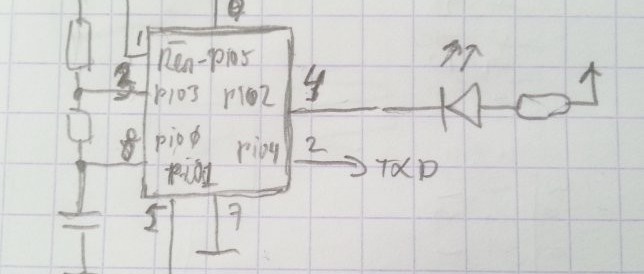 1
Ren-pio5
3
pio3
pio2
4
8
pio0
pio4
2
TXD
pio1
5
7